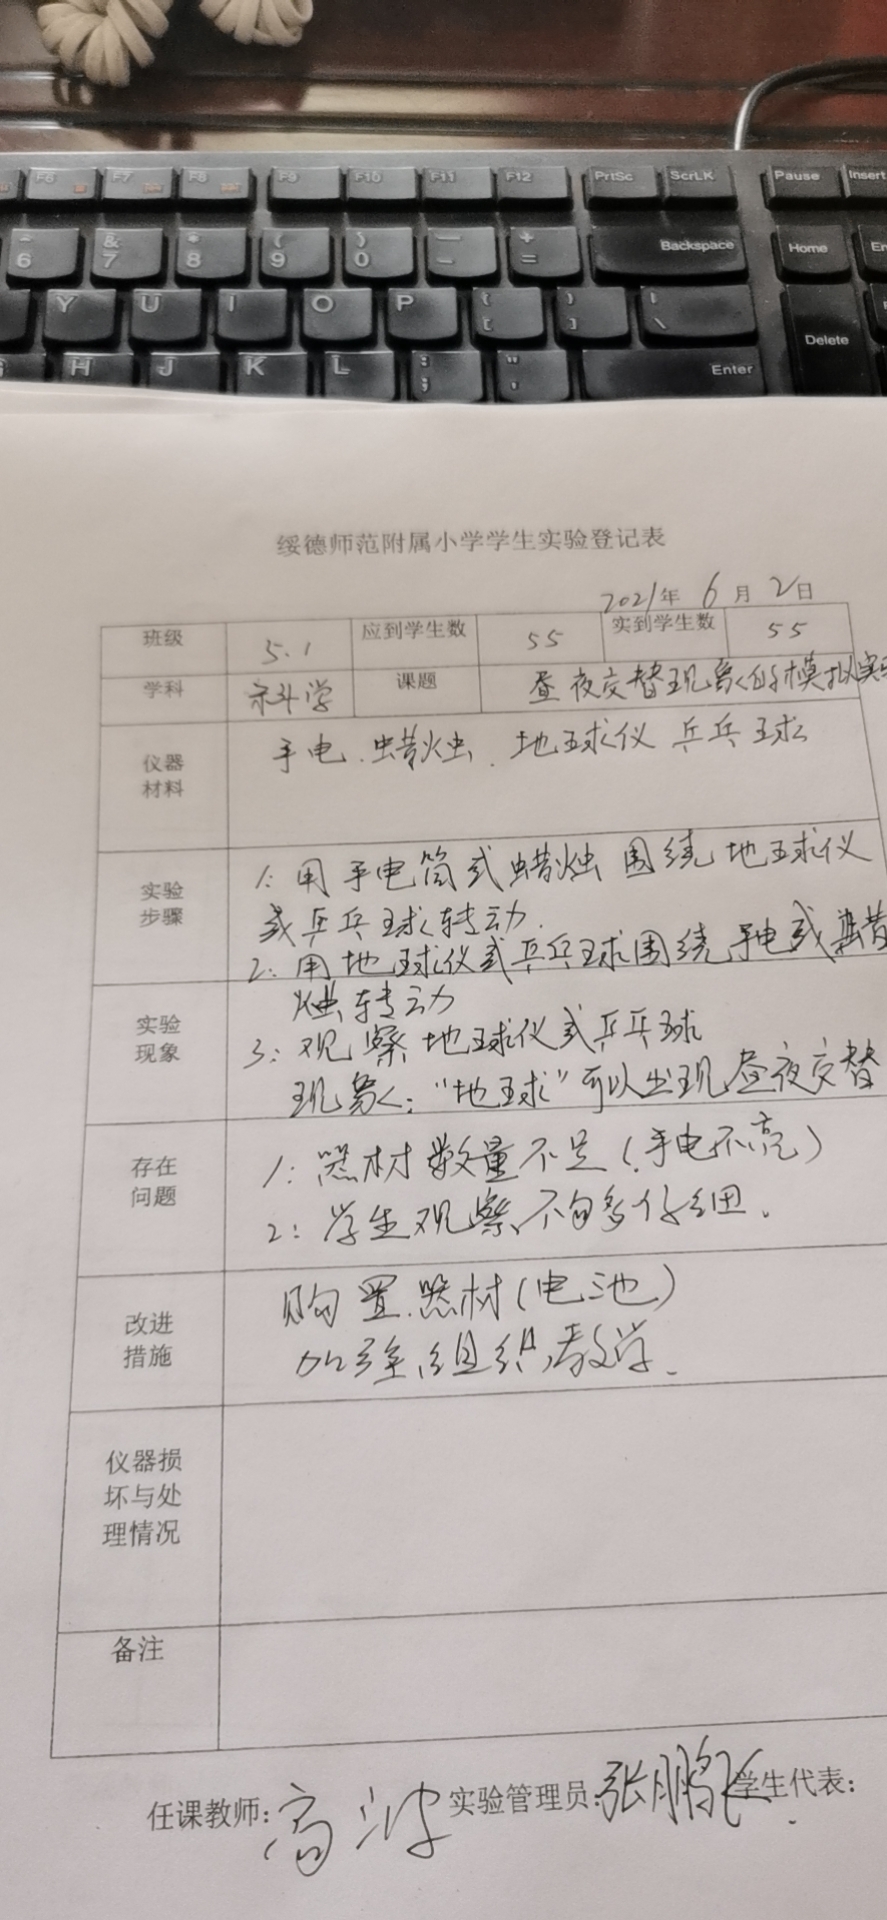 F6 F7 F8 F9 F10 F11 F12 PrtSc ScrLK Pause Insert
^ & * ( ) — +
6 7 8 9 0 - = Backspace Home
Y U I O P { [ } ] | \ Delete
H J K L : ; " ' Enter
绥德师范附属小学学生实验登记表
2021年 6 月 2 日
班级 5.1 应到学生数 55 实到学生数 55
学科 科学 课题 昼夜交替现象的模拟实验
仪器 手电.蜡烛. 地球仪 乒乓球
材料
实验 1: 用手电筒或蜡烛围绕地球仪
步骤 或乒乓球转动.
2: 用地球仪或乒乓球围绕手电或蜡
烛转动
实验 3: 观察地球仪或乒乓球
现象 现象: "地球"可以出现昼夜交替
存在 1: 器材数量不足(手电不亮)
问题 2: 学生观察不够仔细.
改进 购置器材(电池)
措施 加强组织教学.
仪器损
坏与处
理情况
备注
任课教师: 高波 实验管理员: 张鹏飞 学生代表: